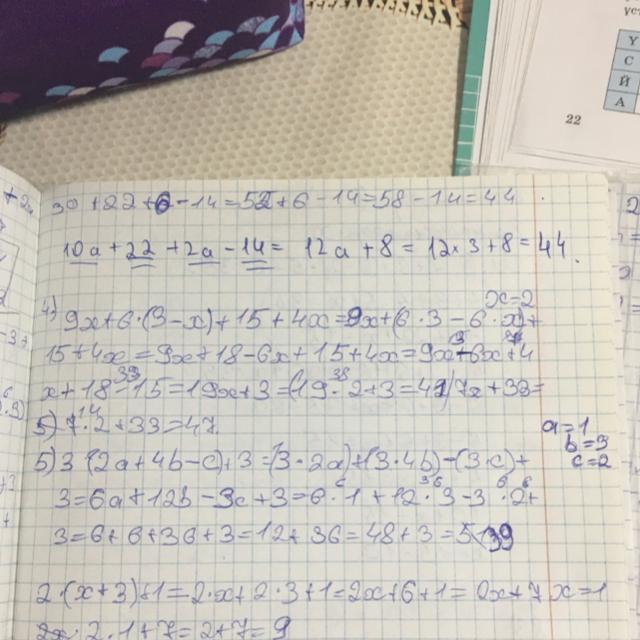 У
С
Й
А
22
30+22+6-14=52+6-14=58-14=44
10a+22+2a-14= 12a+8=12×3+8=44.
x=2
4)
9x+6·(3-x)+15+4x=9x+(6·3-6·x)+
15+4x=9x+18-6x+15+4x=9x-6x+4
x+18+15=19x+3=(19·2+3=41)7x+33=
5)7·2+33=47
a=1
b=3
c=2
5)3(2a+4b-c)+3=(3·2a)+(3·4b)-(3·c)+
3=6a+12b-3c+3=6·1+12·3-3·2+
3=6+6+36+3=12+36=48+3=5 39
2·(x+3)+1=2·x+2·3+1=2x+6+1=2x+7 x=1
2·1+7=2+7=9